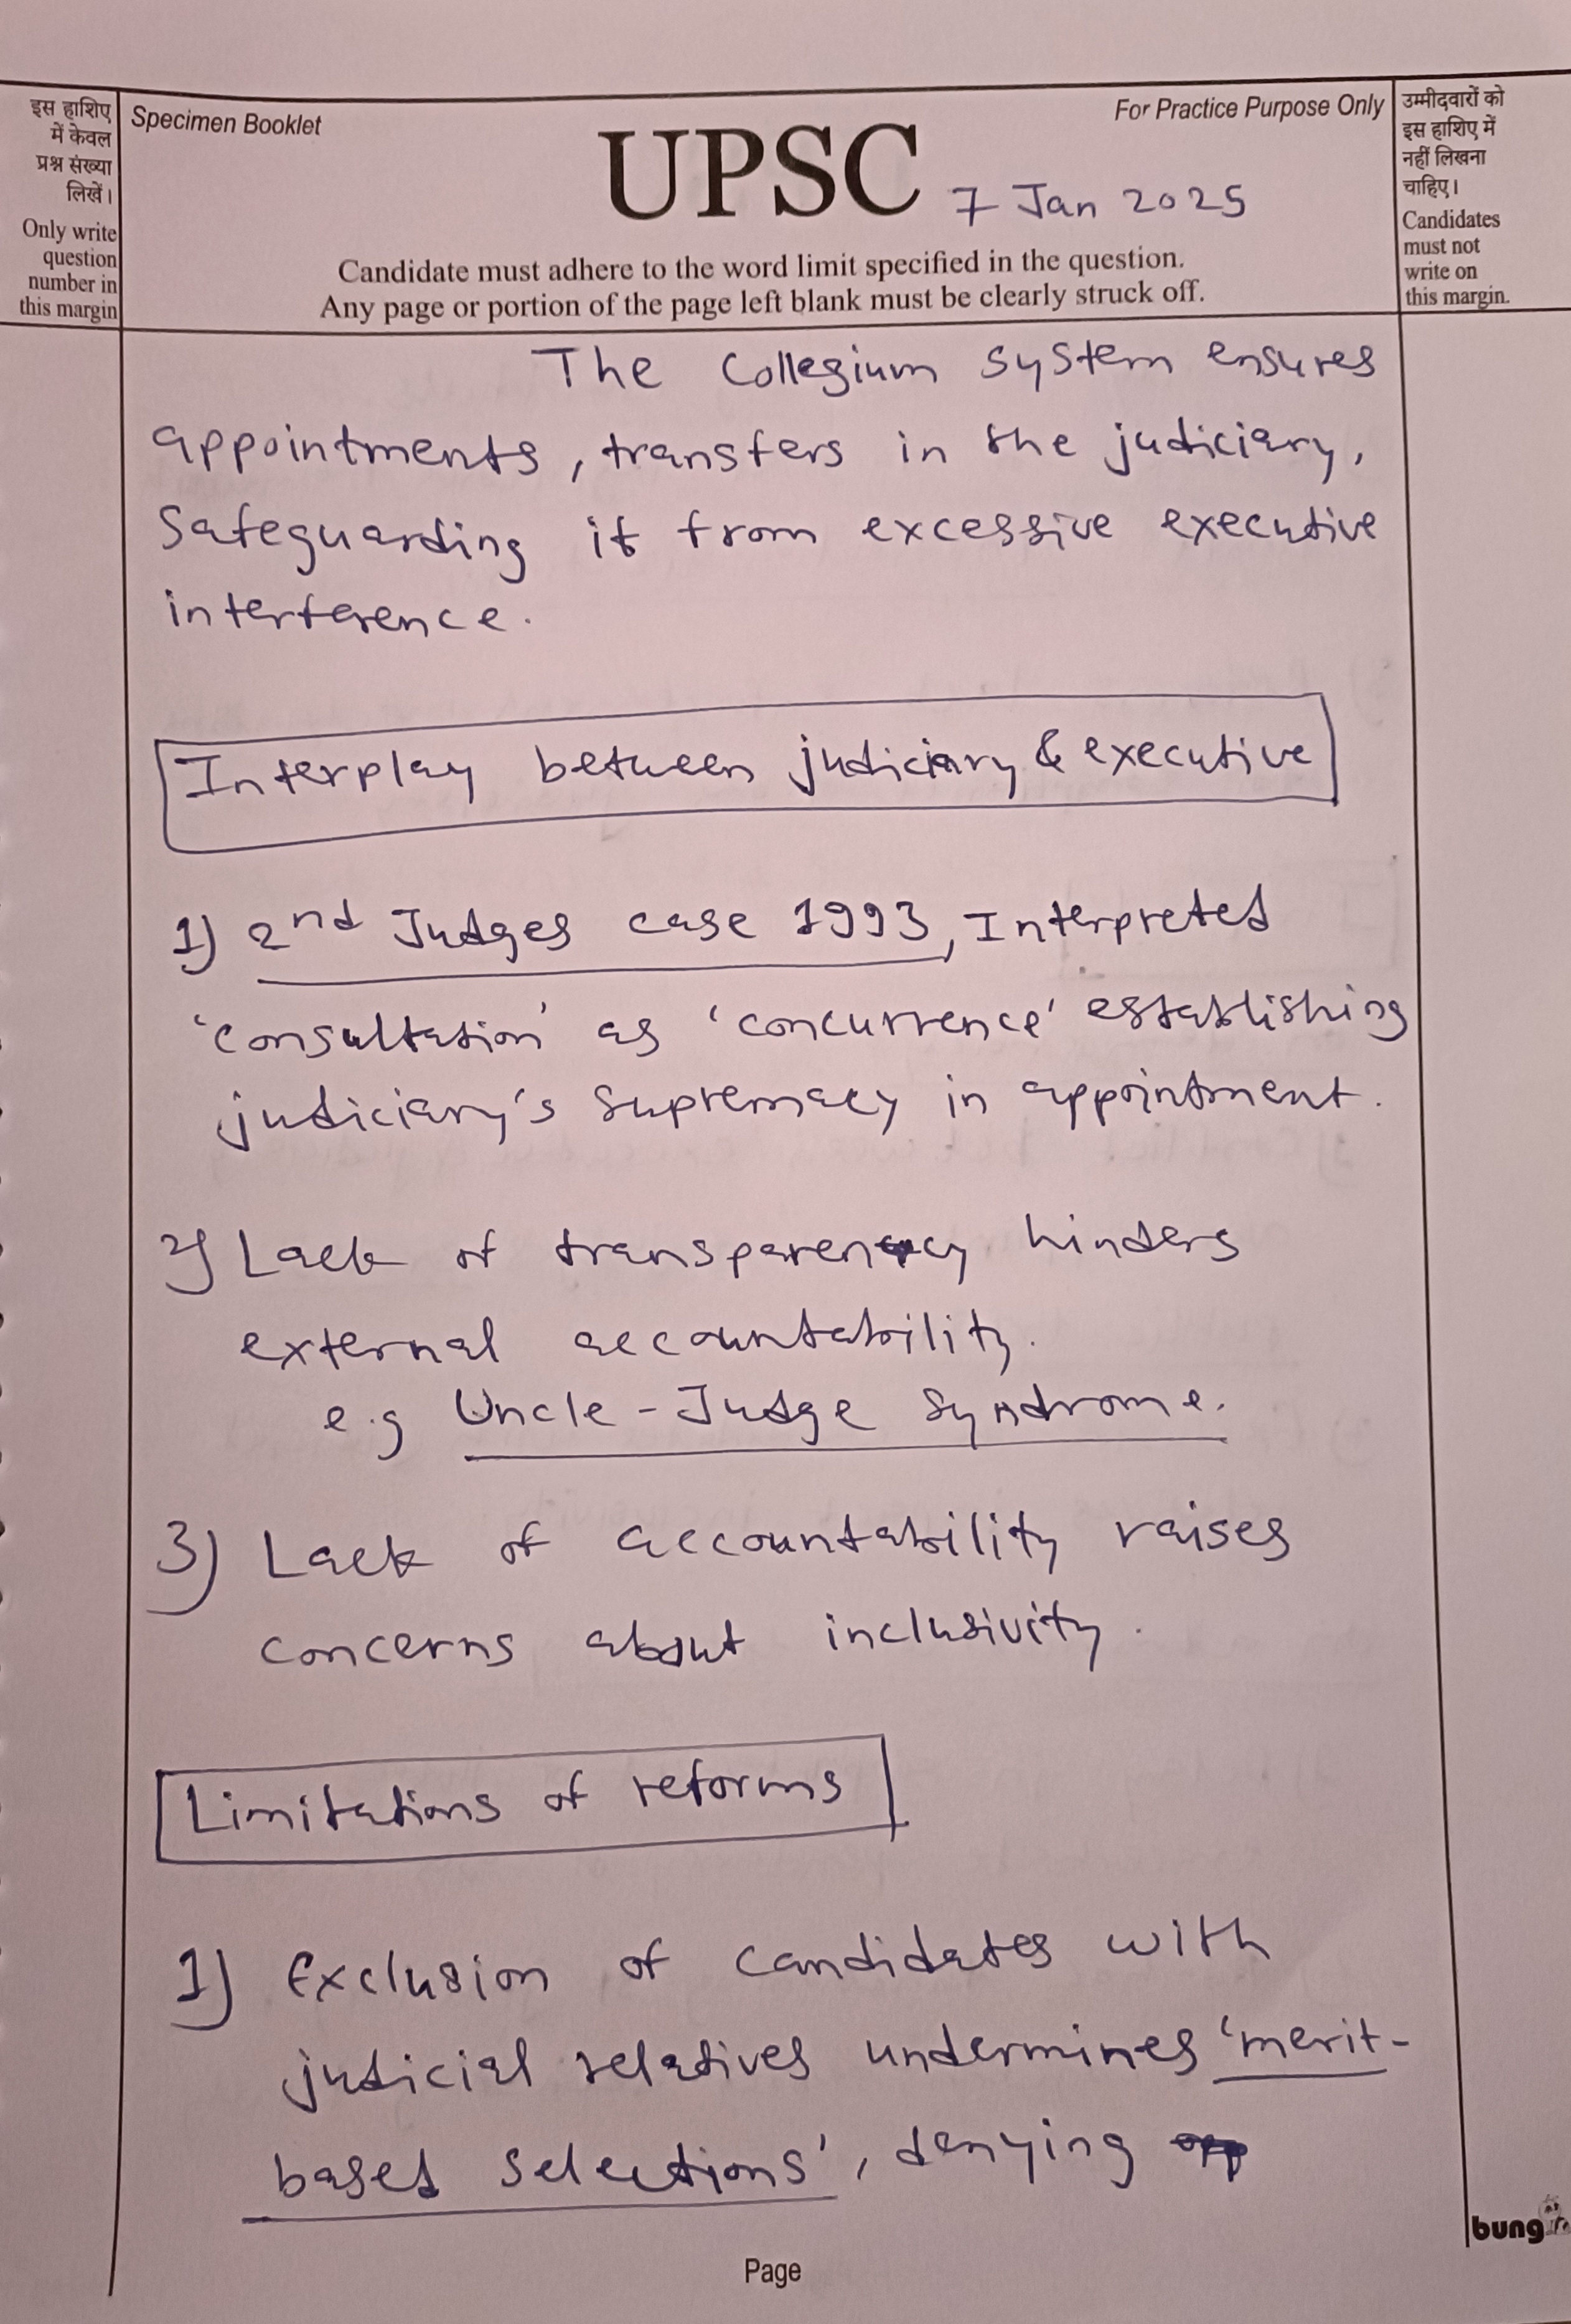 इस हाशिए
में केवल
प्रश्न संख्या
लिखें।
Only write
question
number in
this margin
Specimen Booklet
For Practice Purpose Only
UPSC
7 Jan 2025
Candidate must adhere to the word limit specified in the question.
Any page or portion of the page left blank must be clearly struck off.
उम्मीदवारों को
इस हाशिए में
नहीं लिखना
चाहिए।
Candidates
must not
write on
this margin.
The Collegium system ensures
appointments, transfers in the judiciary,
Safeguarding it from excessive executive
interference.
Interplay between judiciary & executive
1) 2nd Judges case 1993, Interpreted
'consultation' as 'concurrence' establishing
judiciary's supremacy in appointment.
2) Lack of transparency hinders
external accountability.
e.g Uncle-Judge Syndrome.
3) Lack of accountability raises
concerns about inclusivity.
Limitations of reforms
1) Exclusion of candidates with
judicial relatives undermines 'merit-
based selections', denying
Page
bung